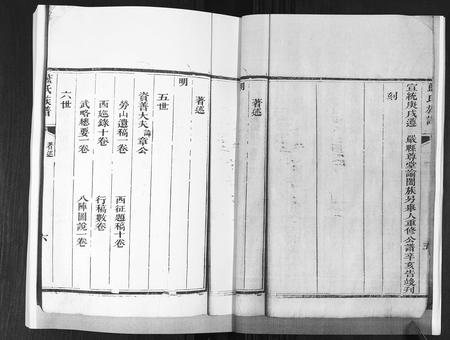 宣統庚戌遵 嚴縣尊堂諭闔族另舉人重修公譜辛亥告竣刊
刻
著述
明
著述
明
五世
資善大夫諭章公
勞山遺稿一卷 西征題稿十卷
西巡錄十卷 行稿數卷
六世
武略總要一卷 八陣圖說一卷
藍氏族譜
著述
六